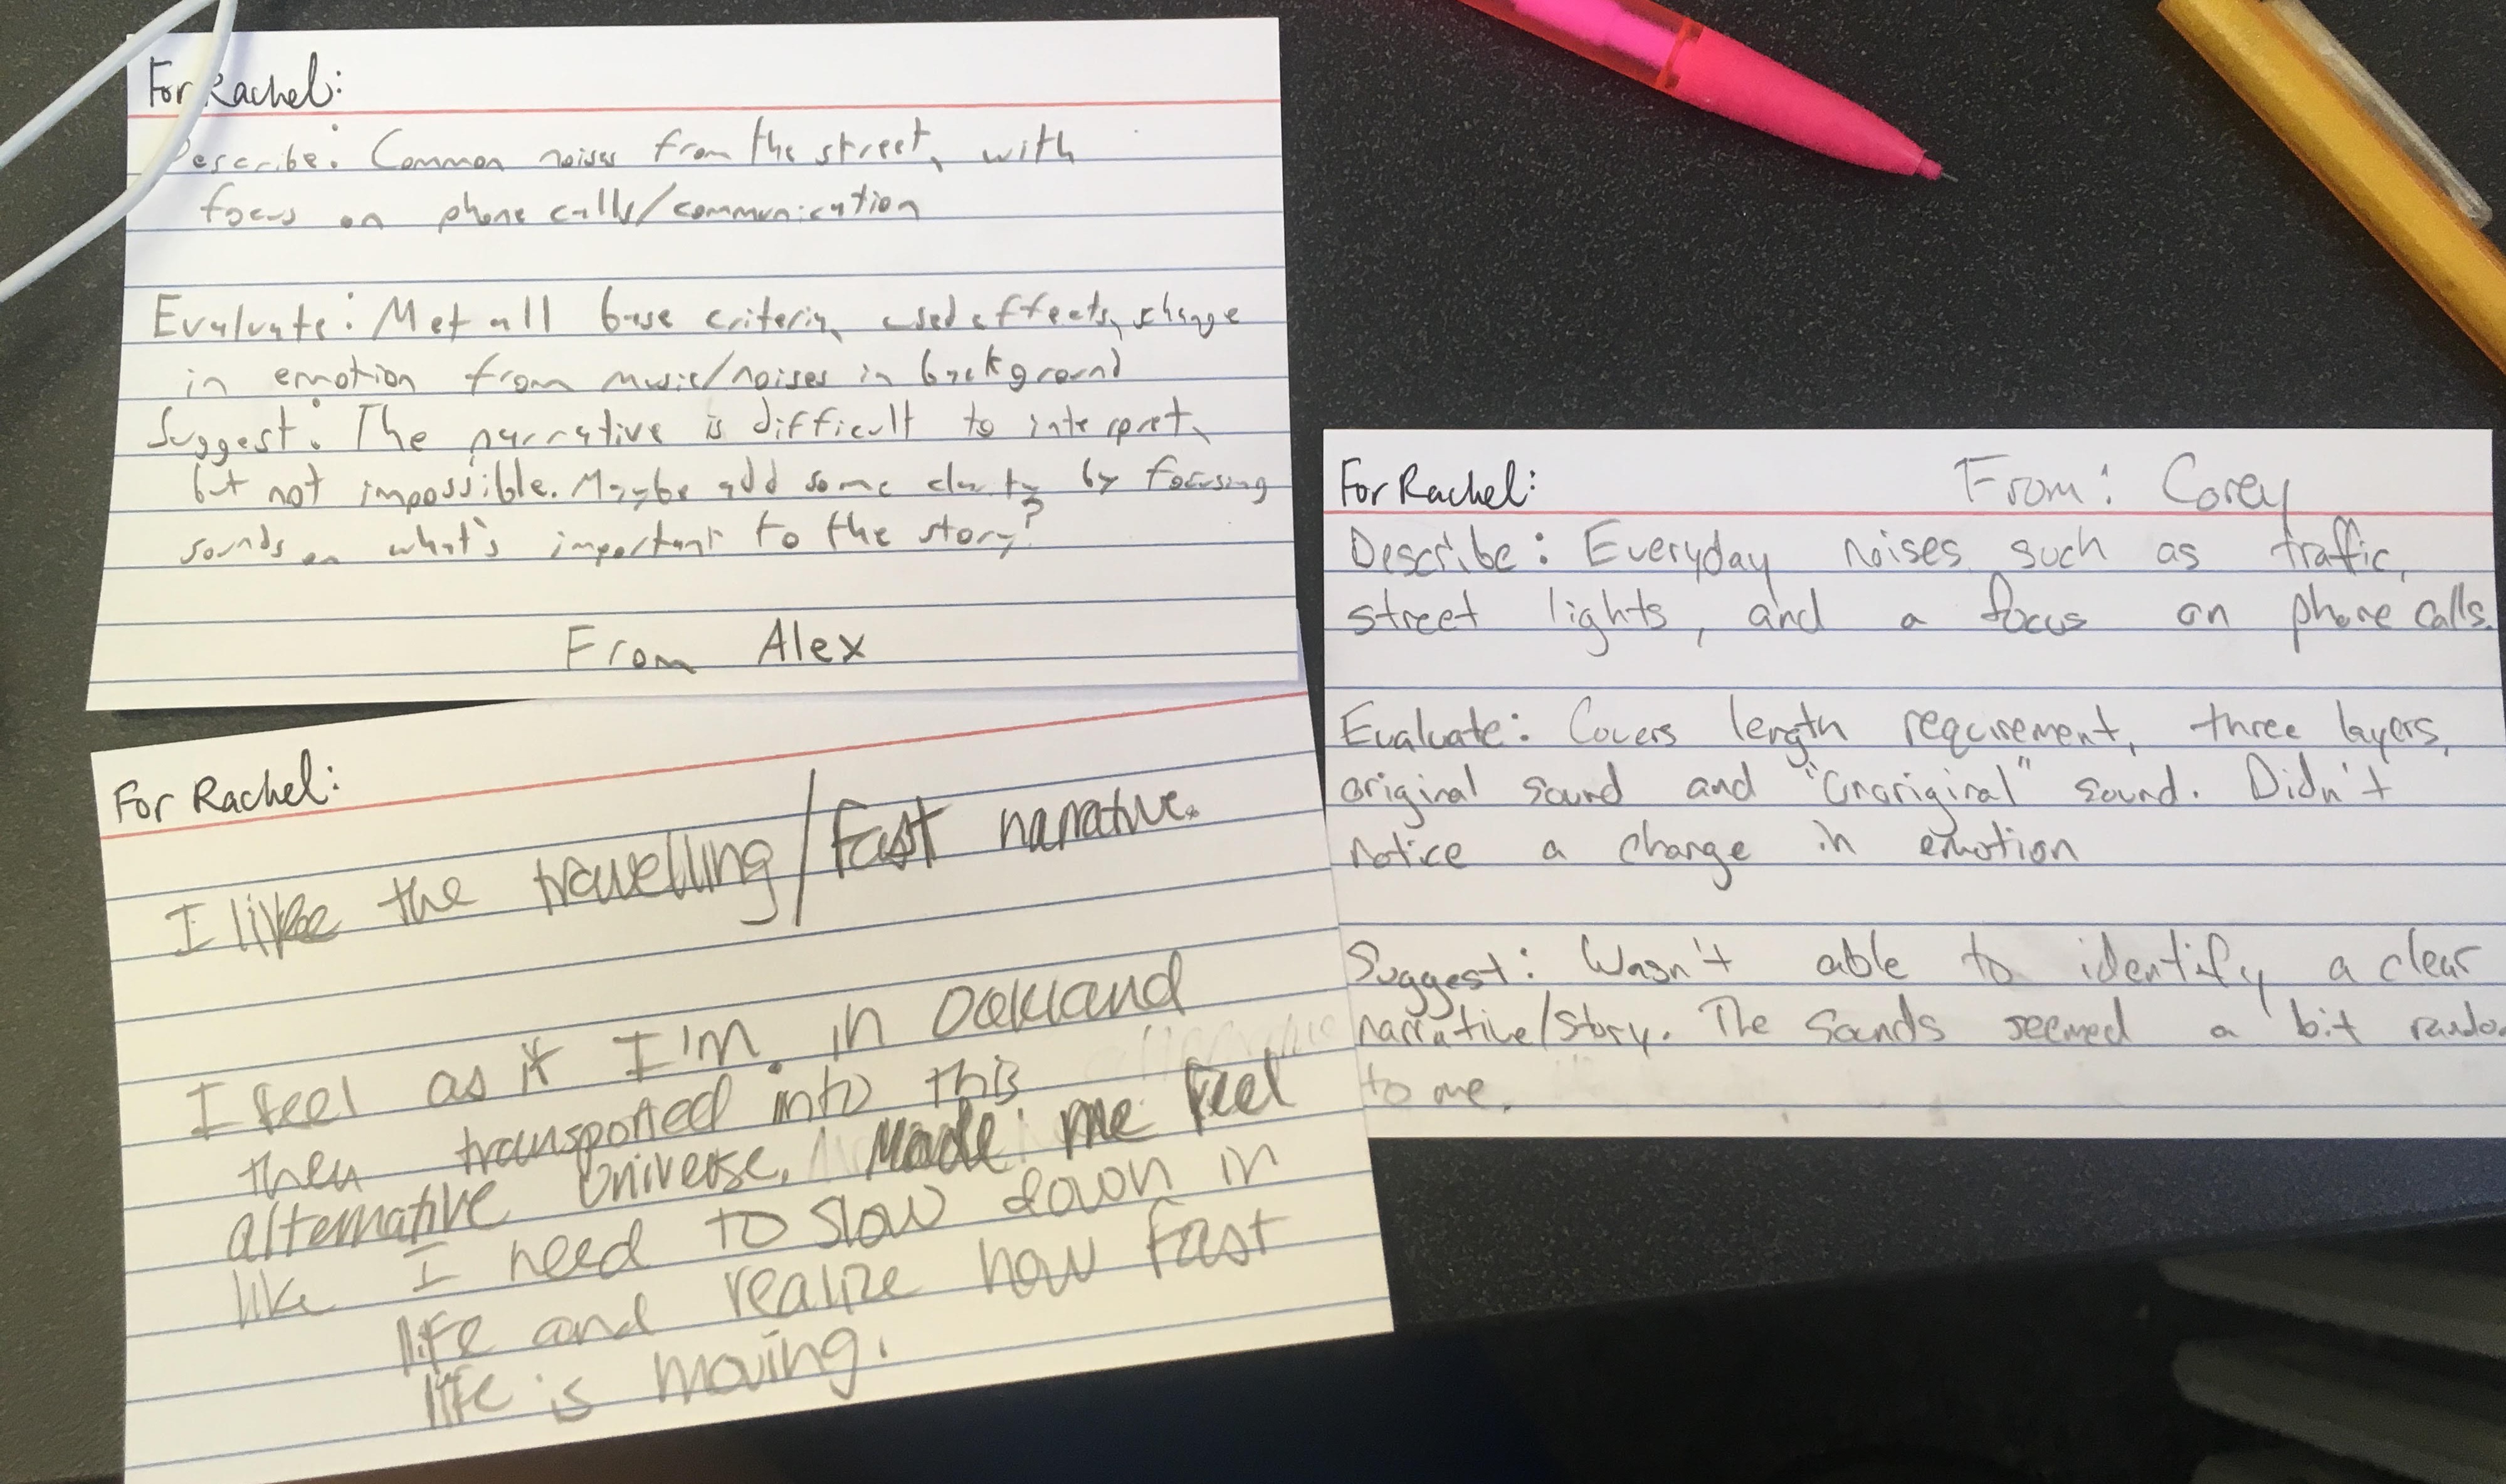 For Rachel:
Describe: Common noises from the street, with
focus on phone calls/communication
Evaluate: Met all base criteria, used effects, change
in emotion from music/noises in background
Suggest: The narrative is difficult to interpret,
but not impossible. Maybe add some clarity by focusing
sounds on what's important to the story?
From Alex
For Rachel:
I like the travelling/fast narrative.
I feel as if I'm in Oakland
then transported into this
alternative Universe. Made me feel
like I need to slow down in
life and realize how fast
life is moving.
For Rachel: From: Corey
Describe: Everyday noises such as traffic,
street lights, and a focus on phone calls.
Evaluate: Covers length requirement, three layers,
original sound and "unoriginal" sound. Didn't
notice a change in emotion
Suggest: Wasn't able to identify a clear
narrative/story. The sounds seemed a bit rando
to me.